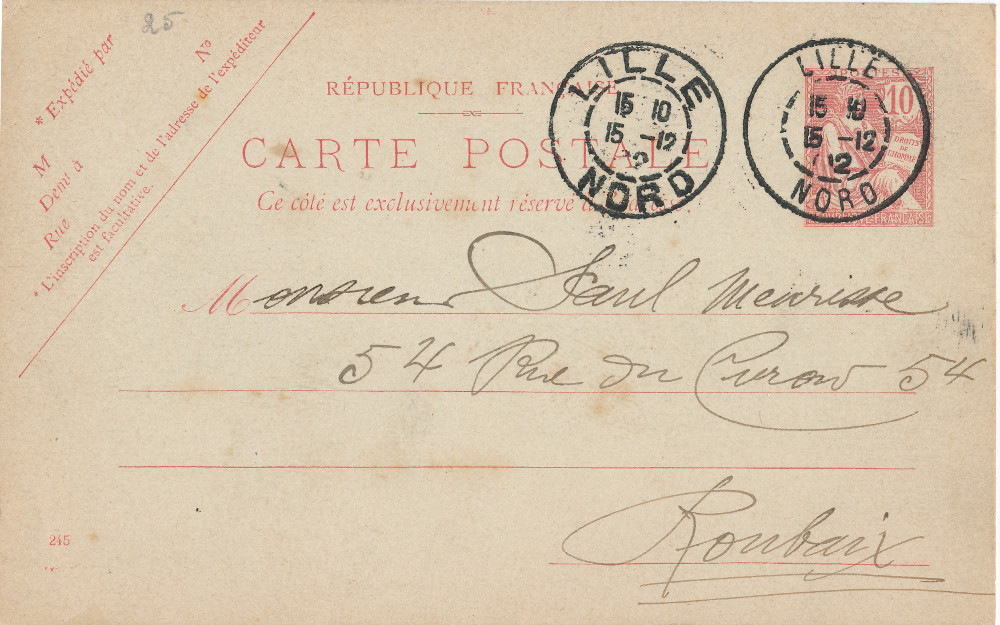 25
* Expédié par
N°
M
Demt à
Rue
* L'inscription du nom et de l'adresse de l'expéditeur
est facultative.
RÉPUBLIQUE FRANÇAISE
CARTE POSTALE
Ce côté est exclusivement réservé à
LILLE
15 10
15 -12
02
NORD
LILLE
15 10
15 -12
02
NORD
10
DROITS
DE
L'HOMME
FRANÇAISE
Monsieur Paul Meurisse
54 Rue du Curoir 54
Roubaix
245